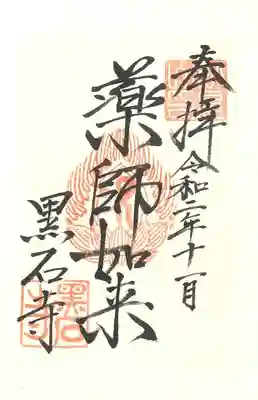 奉拝
令和二年十一月
薬師如来
黒石寺
黒石寺